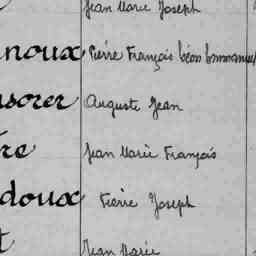 Jean Marie Joseph
noux Pierre François Léon Emmanuel
sorer Auguste Jean
re Jean Marie François
doux Pierre Joseph
t Jean Marie